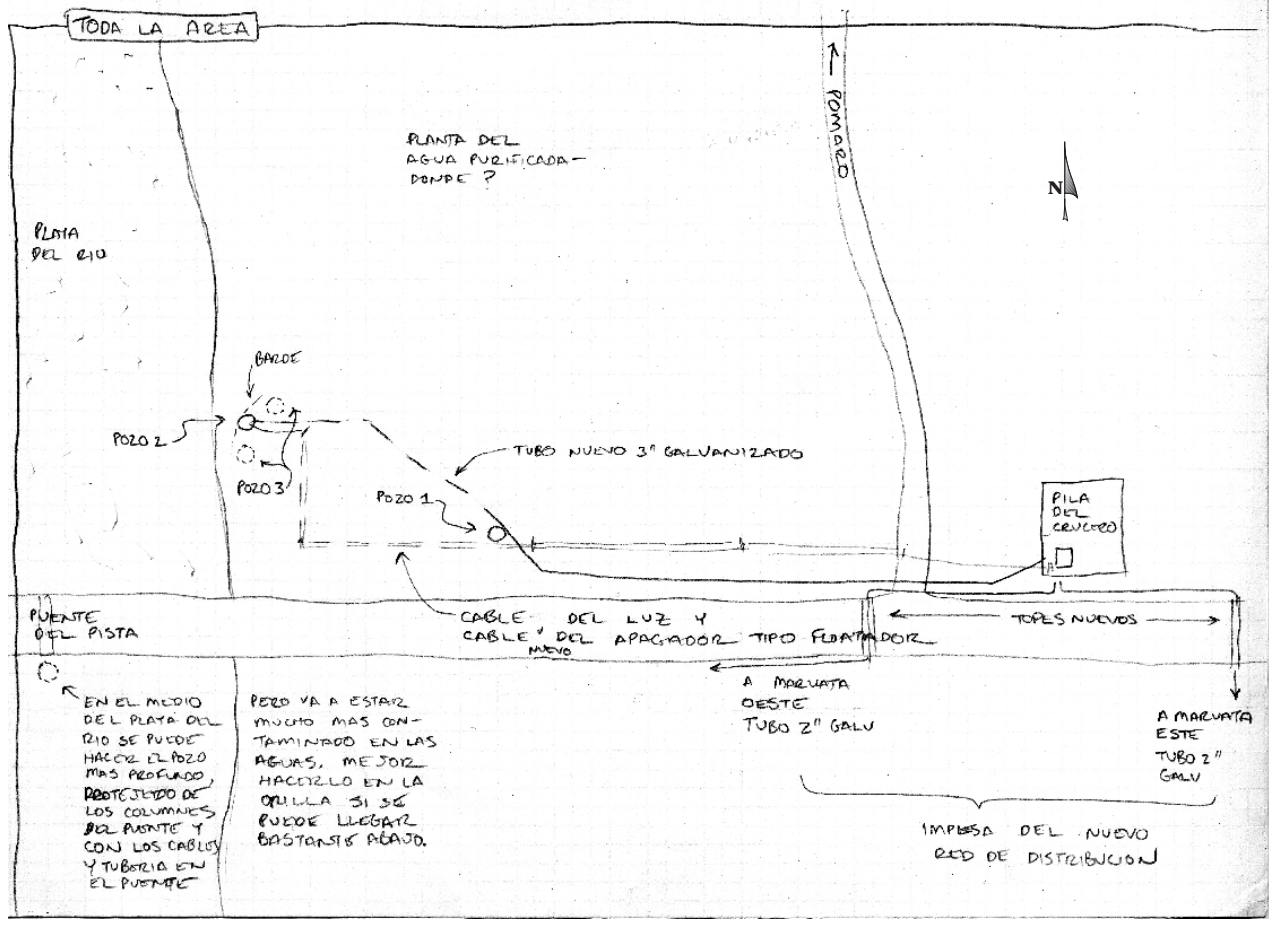 TODA LA AREA
POMARO
PLANTA DEL
AGUA PURIFICADA -
DONDE ?
N
PLAYA
DEL RIO
BARDE
POZO 2
POZO 3
TUBO NUEVO 3" GALVANIZADO
POZO 1
PILA
DEL
CRUCERO
PUENTE
DEL PISTA
CABLE DEL LUZ Y
CABLE DEL APAGADOR TIPO FLOATADOR
NUEVO
TOPES NUEVOS
A MARUATA
OESTE
TUBO 2" GALV
A MARUATA
ESTE
TUBO 2"
GALV
EN EL MEDIO
DEL PLAYA DEL
RIO SE PUEDE
HACER EL POZO
MAS PROFUNDO,
PROTEJEDO DE
LOS COLUMNES
DEL PUENTE Y
CON LOS CABLES
Y TUBERIA EN
EL PUENTE
PERO VA A ESTAR
MUCHO MAS CON-
TAMINADO EN LAS
AGUAS, MEJOR
HACERLO EN LA
ORILLA SI SE
PUEDE LLEGAR
BASTANTE ABAJO.
IMPIESA DEL NUEVO
RED DE DISTRIBUCION